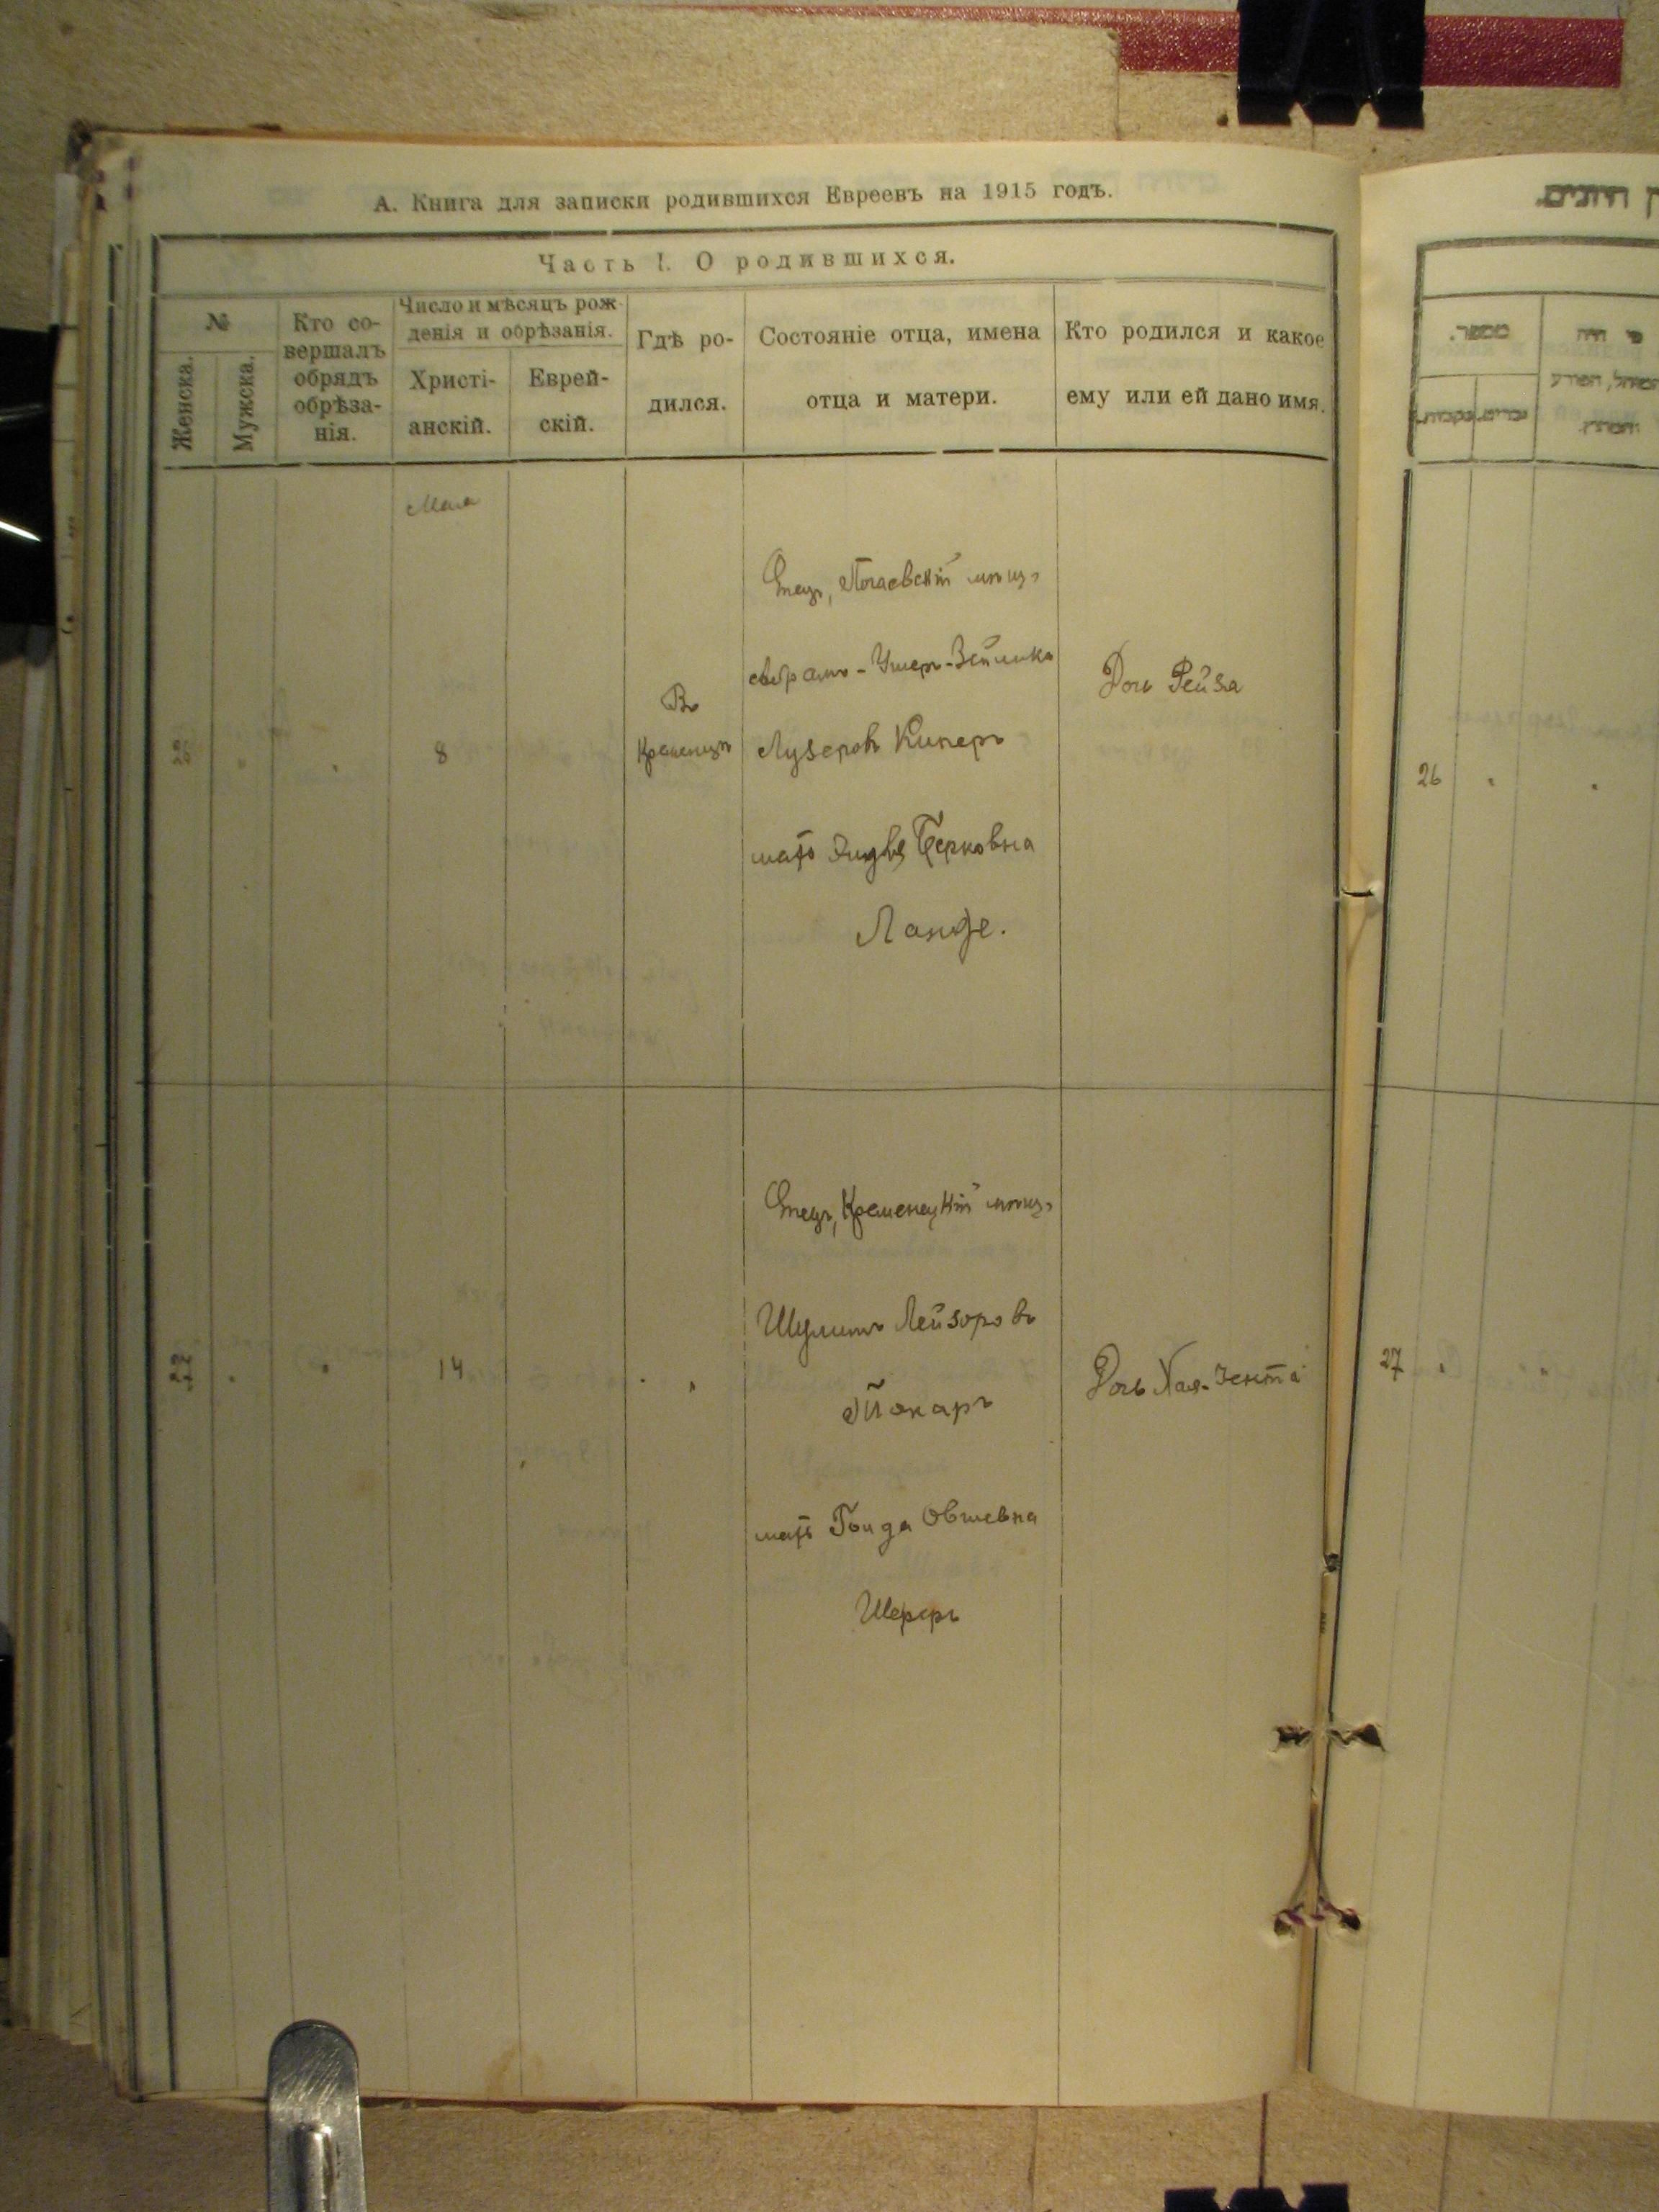 А. Книга для записки родившихся Евреевъ на 1915 годъ.
Часть I. О родившихся.
№
Женска.
Мужска.
Кто со-
вершалъ
обрядъ
обрѣза-
нія.
Число и мѣсяцъ рож-
денія и обрѣзанія.
Христі-
анскій.
Еврей-
скій.
Гдѣ ро-
дился.
Состояніе отца, имена
отца и матери.
Кто родился и какое
ему или ей дано имя.
Мая
26
8
Въ
Кременцѣ
Отецъ, Почаевскій мѣщ.
Абрамъ-Ушеръ-Зейлико
Лузеровъ Киперъ
мать Берковна
Ланде.
Дочь Рейза
27
14
"
Отецъ, Кременецкій мѣщ.
Шулимъ Лейзоровъ
Токаръ
мать Гольда Овшевна
Шереръ
Дочь Хая-Іента
מספר.
26
27